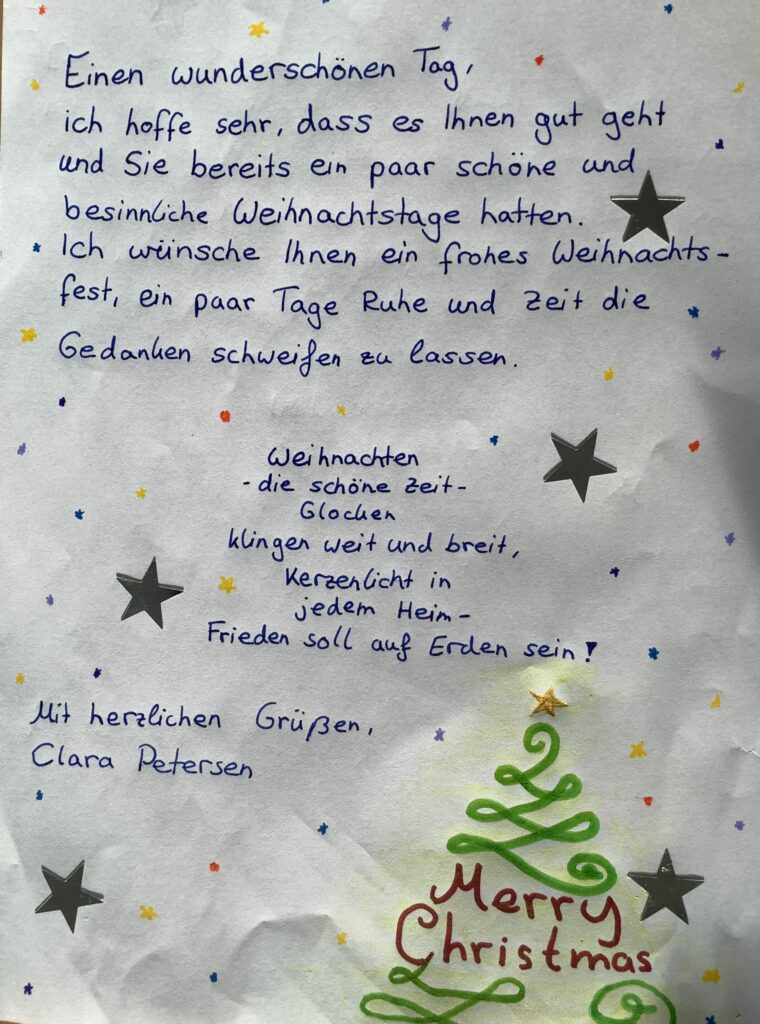 Einen wunderschönen Tag,
ich hoffe sehr, dass es Ihnen gut geht
und Sie bereits ein paar schöne und
besinnliche Weihnachtstage hatten.
Ich wünsche Ihnen ein frohes Weihnachts-
fest, ein paar Tage Ruhe und Zeit die
Gedanken schweifen zu lassen.
Weihnachten
- die schöne Zeit -
Glocken
klingen weit und breit,
Kerzenlicht in
jedem Heim -
Frieden soll auf Erden sein!
Mit herzlichen Grüßen,
Clara Petersen
Merry
Christmas